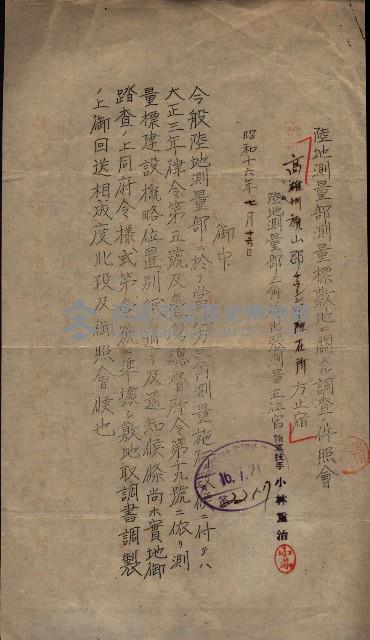 陸地測量部測量標敷地ニ關スル調査ノ件照會
高雄州旗山郡
駐在所方止宿
陸地測量部三角科出張測量主任官
陸軍技手 小林重治
小林
昭和十六年七月十六日
御中
今般陸地測量部ニ於テ當地方三角測量施行候ニ付テハ
大正三年律令第五號及臺灣總督府令第十九號ニ依リ測
量標建設概略位置別紙ノ通リ及通知候條尚ホ實地御
踏査ノ上同府令様式第一號ニ準據シ敷地取調書調製
ノ上御回送相成度此段及御照會候也
16.7.21